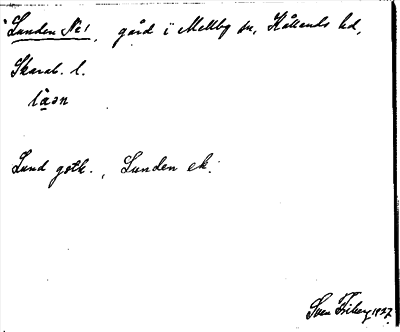 Lunden No 1, gård i Mellby sn, Kållands hd,
Skarab. l.
Lund gstk., Lunden ek.
Sven Friberg 1937.